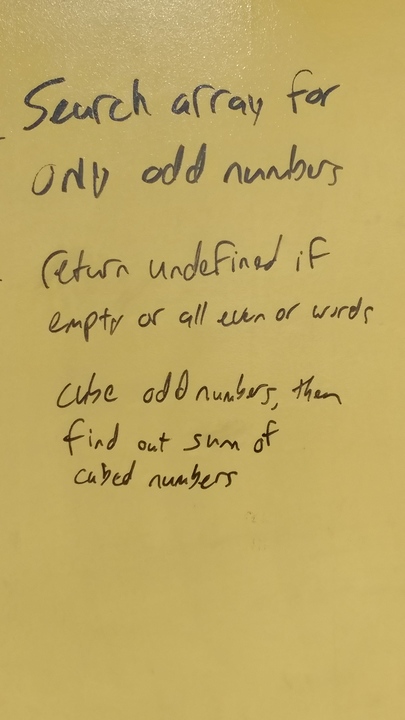 Search array for
only odd numbers
return undefined if
empty or all even or words
cube odd numbers, then
find out sum of
cubed numbers